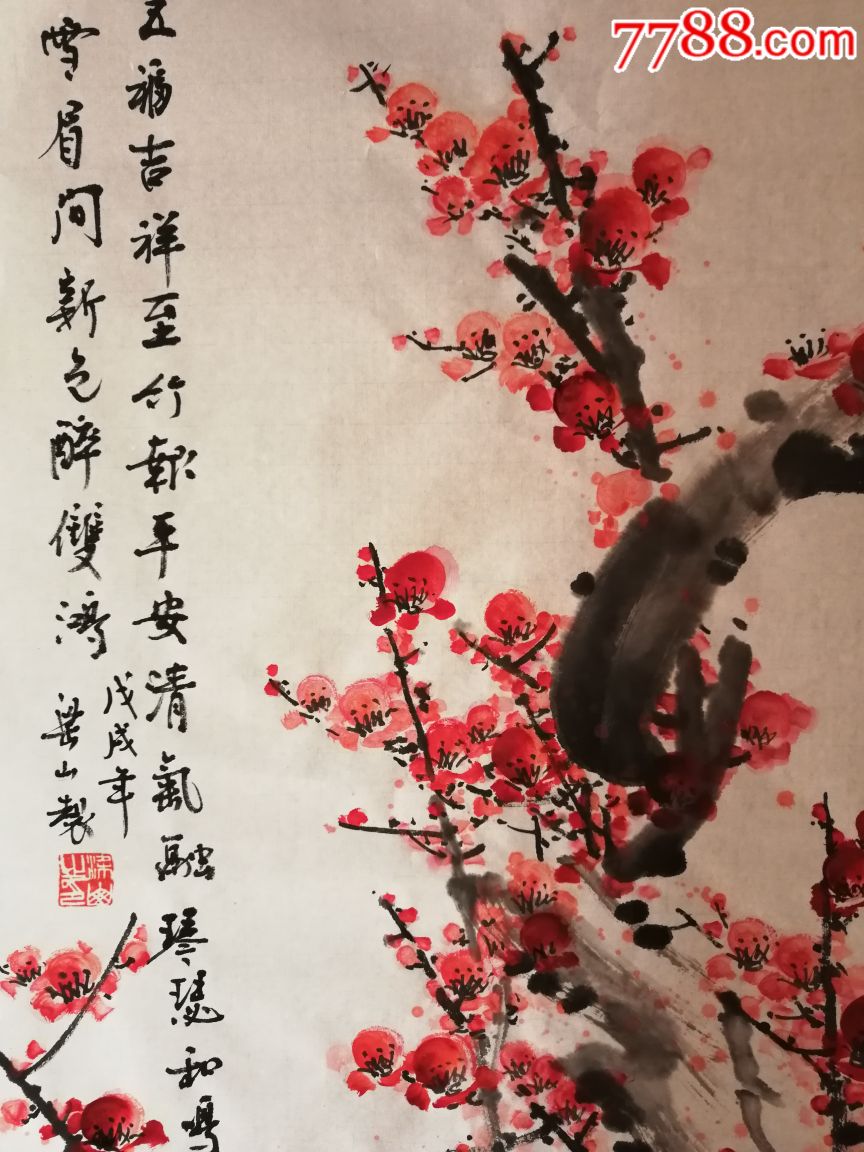 7788.com
五福吉祥至竹報平安清氣融琴瑟和鳴
雪眉间新色醉雙鴻
戊戌年
梁山製